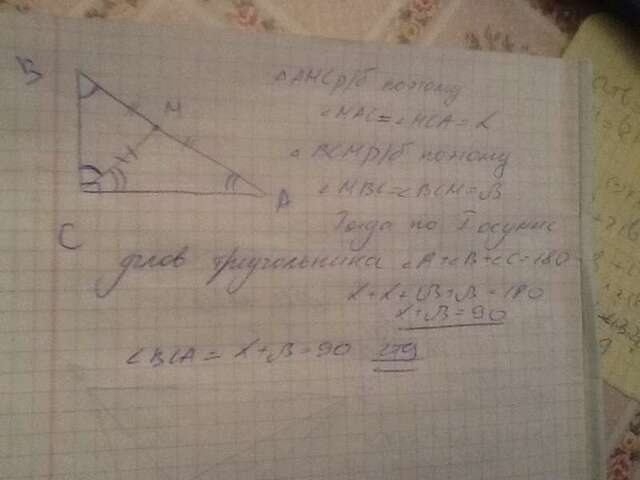 B
M
A
C
△AMC р/б поэтому
∠MAC=∠MCA=α
△BCM р/б поэтому
∠MBC=∠BCM=β
Тогда по Т о сумме
углов треугольника ∠A+∠B+∠C=180
α+α+β+β=180
α+β=90
∠BCA=α+β=90 ЧТД